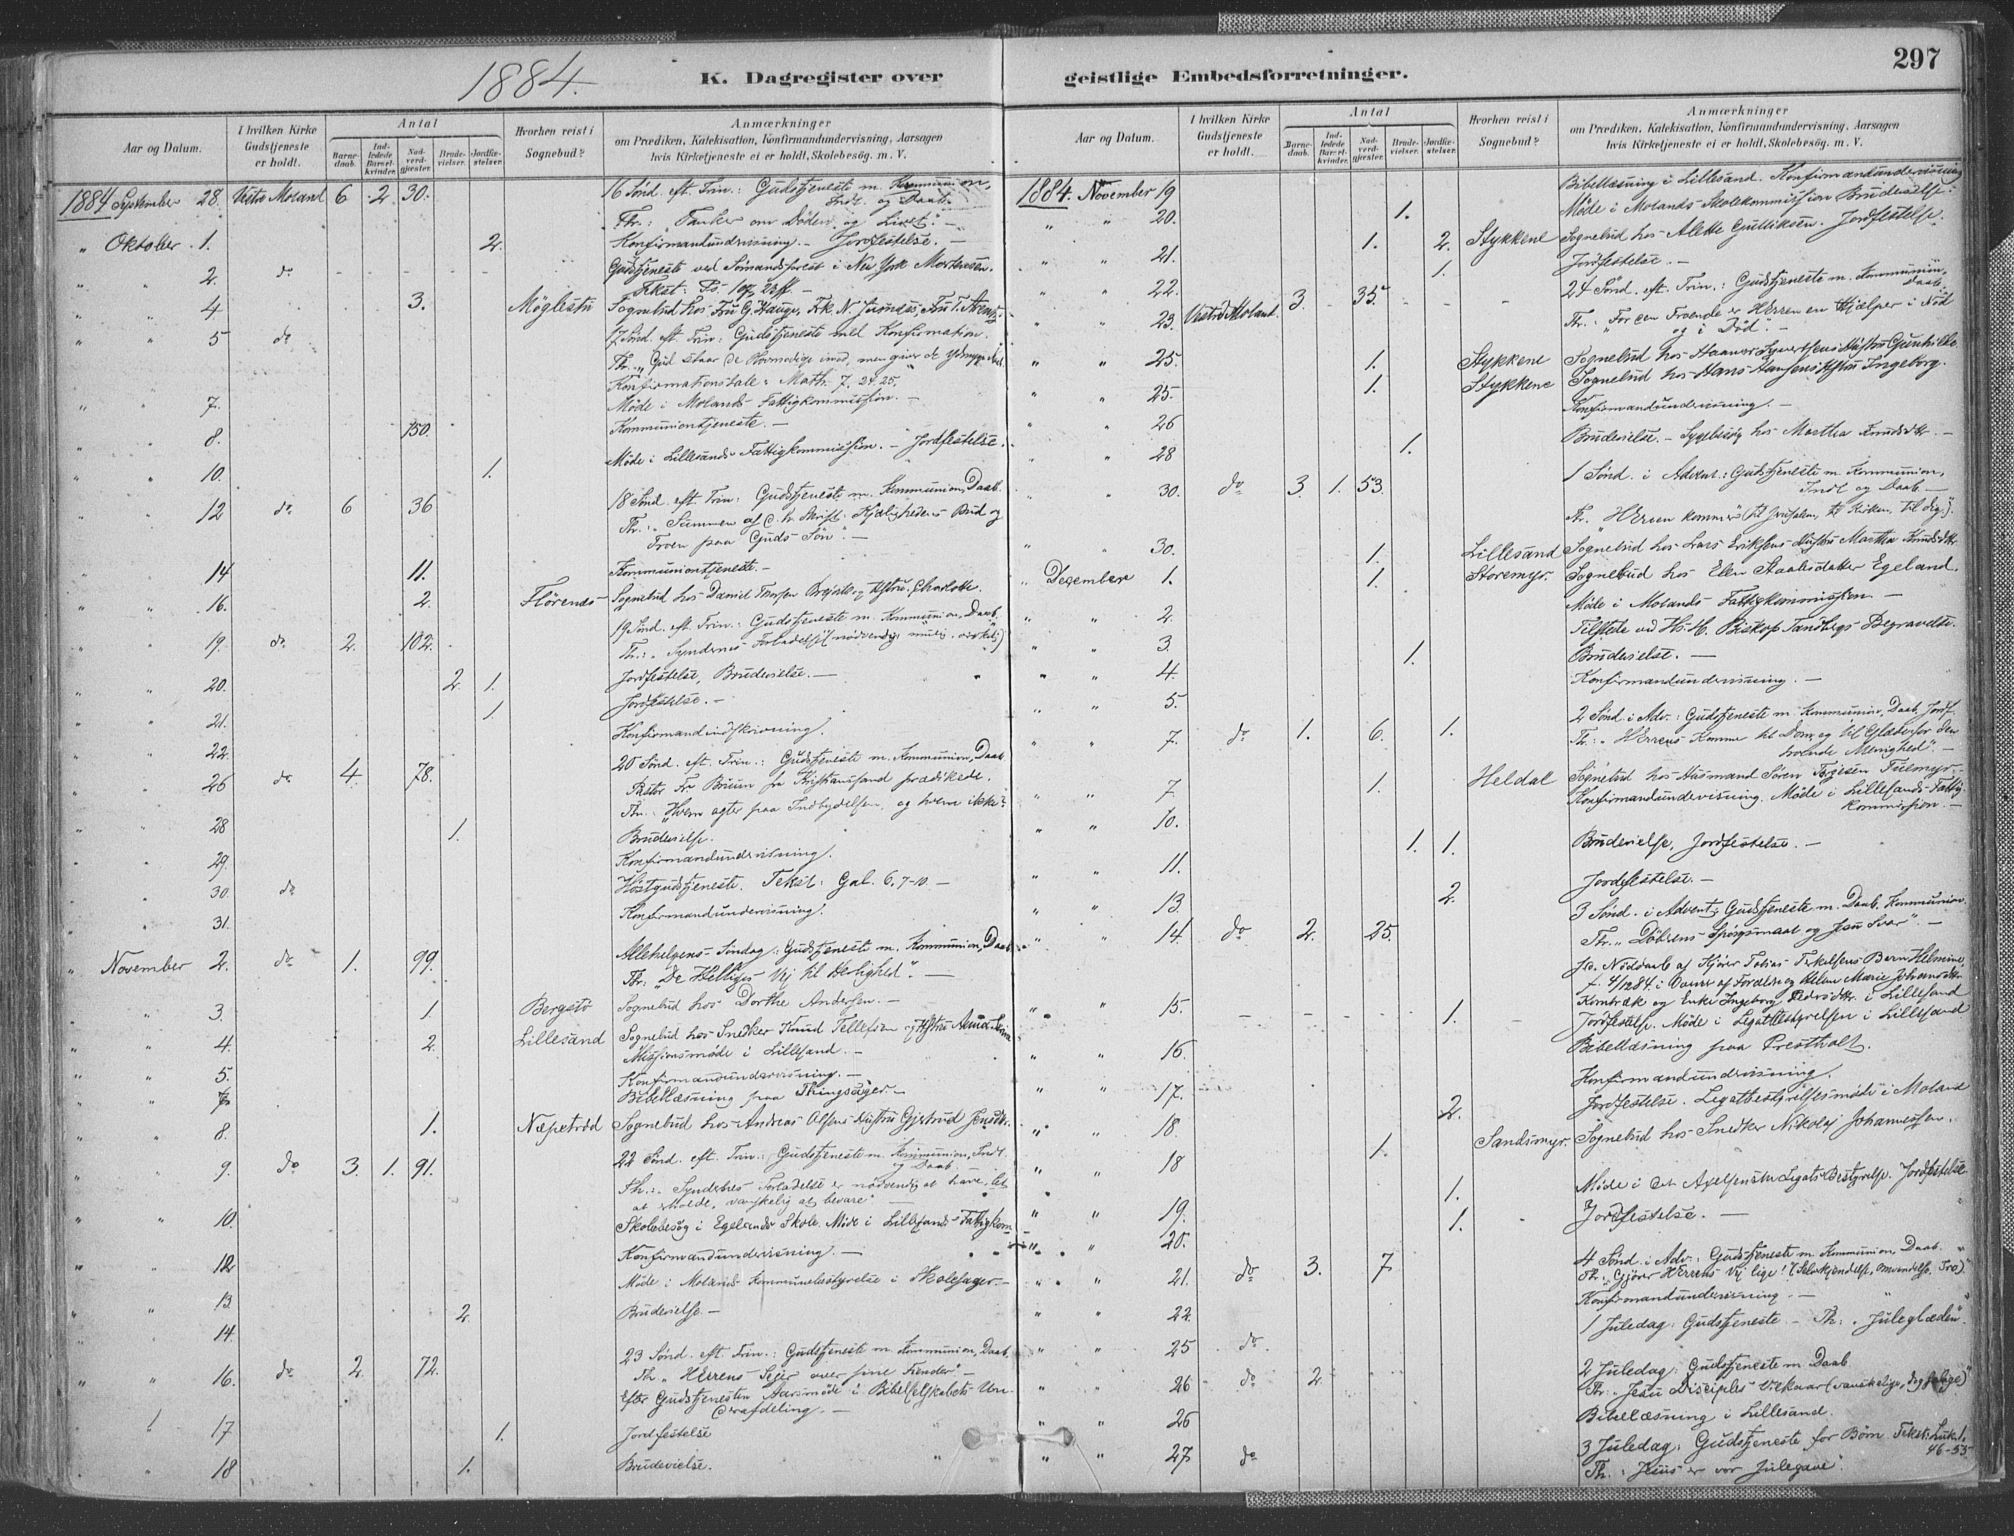 297
1884.
K. Dagregister over
geistlige Embedsforretninger.
Aar og Datum.
I hvilken Kirke Gudstjeneste er holdt.
Antal
Barnedaab.
Indledede Barselkvinder.
Nadverdgjester.
Brudevielser.
Jordfæstelser.
Hvorhen reist i Sognebud?
Anmærkninger
om Prædiken, Katekisation, Konfirmandundervisning, Aarsagen
hvis Kirketjeneste ei er holdt, Skolebesøg. m. V.
1884 September 28. Vestre Moland 6 2 30. 16 Sønd. eft. Trin.: Gudstjeneste m. Kommunion,
Indl. og Daab.
Th.: "Tanker om Døden og Livet". —
" Oktober 1. 2. Konfirmandundervisning. — Jordfestelse. —
" " 2. do Gudstjeneste ved Sømandsforest. i New York Mortensen.
" " 4 3. Møglestu Sognebud hos Fru G. Hauge, Frk. N.
" " 5 do 17 Sønd. eft. Trin: Gudstjeneste med Konfirmation.
Th. "Gud staar de Hovmodige imod, men giver de Ydmyge
Konfirmationstale: Math. 7. 24. 25.
" " 7. Møde i Molands Fattigkommission. —
" " 8. 150. Kommuniontjeneste. —
" " 10. 1. Møde i Lillesands Fattigkommission. — Jordfestelse.
" " 12 do 6 36 18 Sønd. eft. Trin: Gudstjeneste m. Kommunion, Daab.
Th.: "Summen af Skrift: Kjælighedens Bud og
Troen paa Guds Søn". —
" " 14 11. Kommuniontjeneste. —
" " 16. 2. Flørenæs Sognebud hos Daniel og Hstru Charlotte.
" " 19. do 2. 102. 19 Sønd. eft. Trin: Gudstjeneste m. Kommunion, Daab.
Th.: "Syndernes Forladelse (nødvendig, mulig, virkelig)
" " 20. 2. 1. Jordfestelse, Brudevielse. —
" " 21. 1. Jordfestelse. —
" " 22. Konfirmandindskrivning.
" " 26 do 4. 78. 20 Sønd. eft. Trin.: Gudstjeneste m. Kommunion, Daab
Pastor Fr. Bruun fra Kristiansand prædikede.
Th.: "Hvem agter paa Indbydelsen, og hvem ikke?
" " 28 1. Brudevielse.
" " 29. Konfirmandundervisning.
" " 30. do Høstgudstjeneste. Tekst: Gal. 6. 7-10. —
" " 31. Konfirmandundervisning.
" November 2. do 1. 99. Allehelgens-Søndag: Gudstjeneste m. Kommunion, Daab
Th: "De Helliges Vej til Herlighed". —
" " 3. 1. Bergstø Sognebud hos Dorthe Andersen. —
" " 4. 2. Lillesand Sognebud hos Snedker Knud Tellefsen og Hstru
Missionsmøde i Lillesand. —
" " 5. Konfirmandundervisning. —
" " 7. Bibellæsning paa Thingsager. —
" " 8. 1. Næpetrød Sognebud hos Andreas Olsens Hustru Gjertrud Jensdtr.
" " 9. do 3. 1. 91. 22 Sønd. eft. Trin.: Gudstjeneste m. Kommunion, Indl.
og Daab.
Th.: "Syndernes Forladelse er nødvendig at have, let
at erholde, vanskelig at bevare" —
" " 10. Skolebesøg i Egelands Skole. Møde i Lillesands Fattigkom
" " 12 Konfirmandundervisning. —
" " 13. Møde i Molands Kommunebestyrelse i —
" " 14. 2. Brudevielse —
" " 16. do 2. 72. 23 Sønd. eft. Trin.: Gudstjeneste m. Kommunion, Daab.
Th. "Herrens Sejer over sine Fiender". —
Efter Gudstjenesten Aarsmøde i Bibelselskabets Un-
derafdeling. —
" " 17 1. Jordfestelse
" " 18 1. Brudevielse.
Aar og Datum.
I hvilken Kirke Gudstjeneste er holdt.
Antal
Barnedaab.
Indledede Barselkvinder.
Nadverdgjester.
Brudevielser.
Jordfæstelser.
Hvorhen reist i Sognebud?
Anmærkninger
om Prædiken, Katekisation, Konfirmandundervisning, Aarsagen
hvis Kirketjeneste ei er holdt, Skolebesøg. m. V.
1884. November 19 Bibellæsning i Lillesand. Konfirmandundervisning
" " 20. 1. Møde i Molands Skolekommission Brudevielse.
" " 21. 1. 2. Stykkene Sognebud hos Alette Gulliksen. Jordfestelse.
" " 22. 1. Jordfestelse. —
" " 23. Vestre Moland. 3. 35. 24 Sønd. eft. Trin.: Gudstjeneste m. Kommunion,
Daab.
Th.: "For den Troende er Herren en Hjælper i Nød
og i Død". —
" " 25. 1. Stykkene Sognebud hos Syvertsens Hustru Gunhilde
" " 25. 1. Stykkene Sognebud hos Hans Hansens Hstru Ingeborg.
" " 26 Konfirmandundervisning. —
" " 28 1. Brudevielse. — Sygebesøg hos Martha Knudsdtr. —
" " 30. do 3. 1. 53. 1 Sønd. i Advent: Gudstjeneste m. Kommunion,
Indl. og Daab. —
Th. "Herren kommer" (til Jerusalem, til Kirken, til dig).
" " 30. 1. Lillesand Sognebud hos Lars Eriksens Hustru Martha Knudsdtr.
" Desember 1. 1. Storemyr. Sognebud hos Elen Egeland.
" " 2. Møde i Molands Fattigkommission. —
" " 3. Tilstede ved H. H. Biskop Tandbergs Begravelse.
" " 4. 1. Brudevielse. —
" " 5. Konfirmandundervisning. —
" " 7. do 1. 6. 1. 2 Sønd. i Adv.: Gudstjeneste m. Kommunion, Daab, Jordf.
Th.: "Herrens Komme til Dom, og til Glæde for den
troende Menighed". —
" " 7. 1. Heldal Sognebud hos Husmand Søren Terjesen
" " 10. Konfirmandundervisning. Møde i Lillesands Fattig-
kommission. —
" " 11. 1. 1. Brudevielse, Jordfestelse. —
" " 13. 2. Jordfestelse. —
" " 14. do 2. 25. 3 Sønd. i Advent: Gudstjeneste m. Daab, Kommunion.
Th. "Døberens Spørgsmaal og Jesu Svar". —
Nøddaab af Tobias Terkelsens Barn
f. 4/12 84. i af Forældre og Marie
og Enke Ingeborg i Lillesand
" " 15. 1. Jordfestelse. Møde i Legatbestyrelsen i Lillesand
" " 16. Bibellæsning paa Prestholt.
" " 17. Konfirmandundervisning.
" " 18. 2. Jordfestelse. Legatbestyrelsesmøde i Moland
" " 18 1. Sandsmyr. Sognebud hos Snedker Nikolaj Johannessen.
" " 19. 1. Møde i det Legats Bestyrelse. Jordfestelse
" " 20. 1. Jordfestelse. —
" " 21. do 3. 7. 4 Sønd. i Adv.: Gudstjeneste m. Kommunion, Daab.
Th. "Gjører Herrens Vej lige! (Selverkjendelse, Omvendelse, Tro)."
" " 22. Konfirmandundervisning. —
" " 25 do. 1 Juledag: Gudstjeneste — Th.: "Juleglæden".
" " 26 do 2 2 Juledag: Gudstjeneste m. Daab.
Th. "Jesu Disciples Vilkaar (vanskelige, dog salige)"
" " 26 Bibellæsning i Lillesand.
" " 27 do 3 Juledag: Gudstjeneste for Børn. Tekst: Luk. 1.
46-55
Th.: "Jesus er vor Julegave".